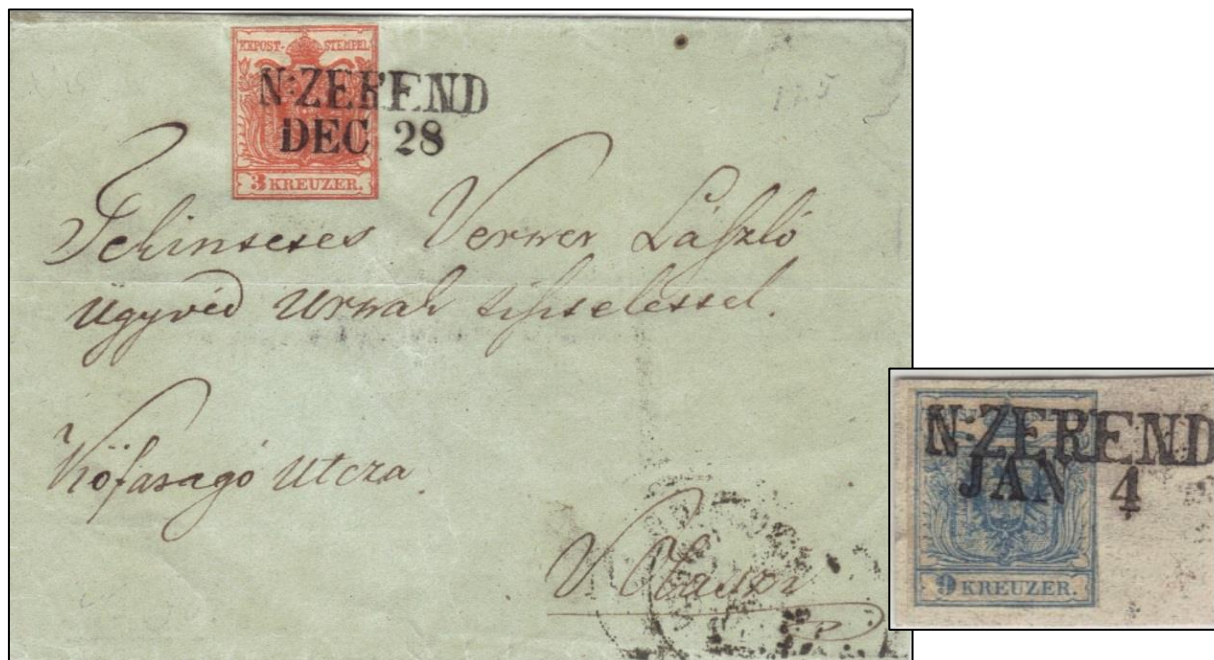 KKPOST-STEMPEL
N:ZEREND
DEC 28
3 KREUZER.
Tekinteses Verner László
ügyvéd Urnak tisztelessel.
Kőfaragó utcza.
N:ZEREND
JAN 4
9 KREUZER.